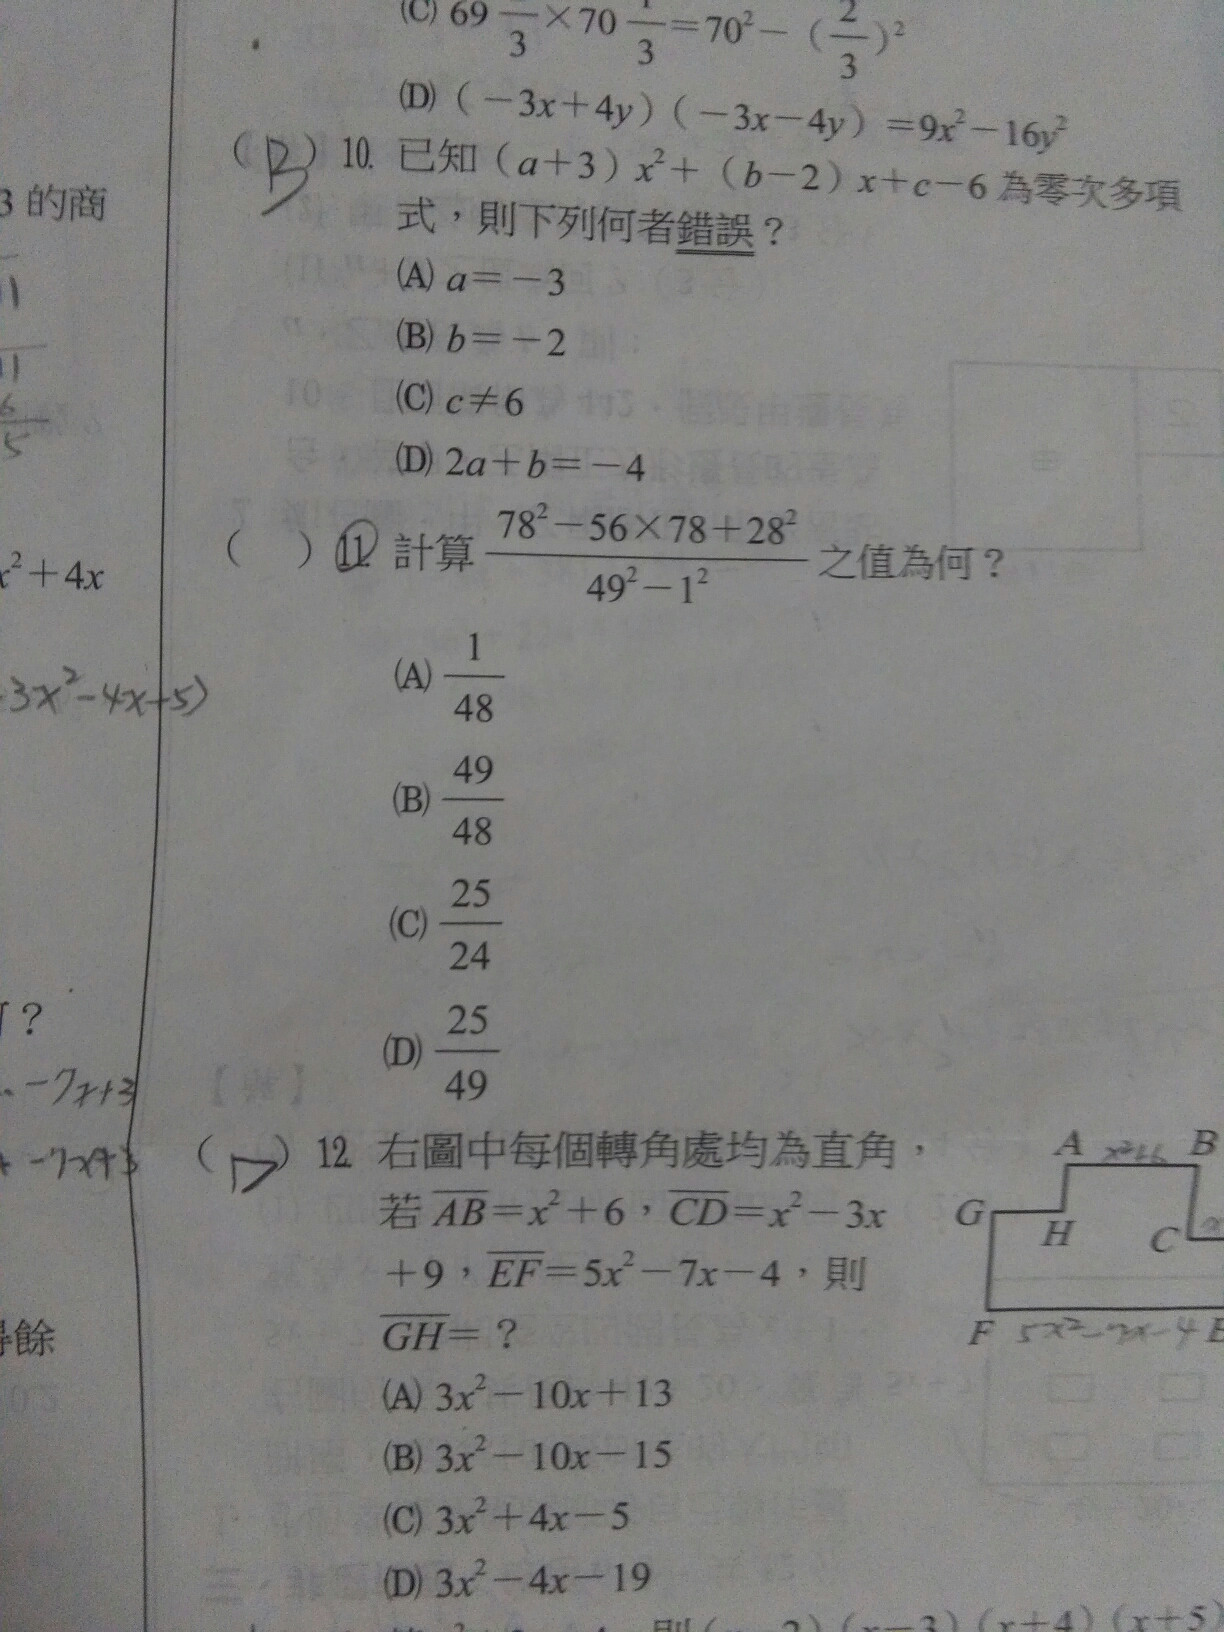 (C) 69 2/3 × 70 1/3 = 70² − (2/3)²
(D) (−3x+4y)(−3x−4y) = 9x²−16y²
(B) 10. 已知(a+3)x²+(b−2)x+c−6為零次多項
式，則下列何者錯誤？
(A) a=−3
(B) b=−2
(C) c≠6
(D) 2a+b=−4
( ) 11. 計算 (78²−56×78+28²)/(49²−1²) 之值為何？
(A) 1/48
(B) 49/48
(C) 25/24
(D) 25/49
(D) 12. 右圖中每個轉角處均為直角，
若AB=x²+6，CD=x²−3x
+9，EF=5x²−7x−4，則
GH=？
(A) 3x²−10x+13
(B) 3x²−10x−15
(C) 3x²+4x−5
(D) 3x²−4x−19
A x²+6 B
G H C
F 5x²−7x−4 E
3 的商
x²+4x
3x²−4x+5)
？
−7x+3
−7x+3
得餘
則(x−2)(x−3)(x+4)(x+5)